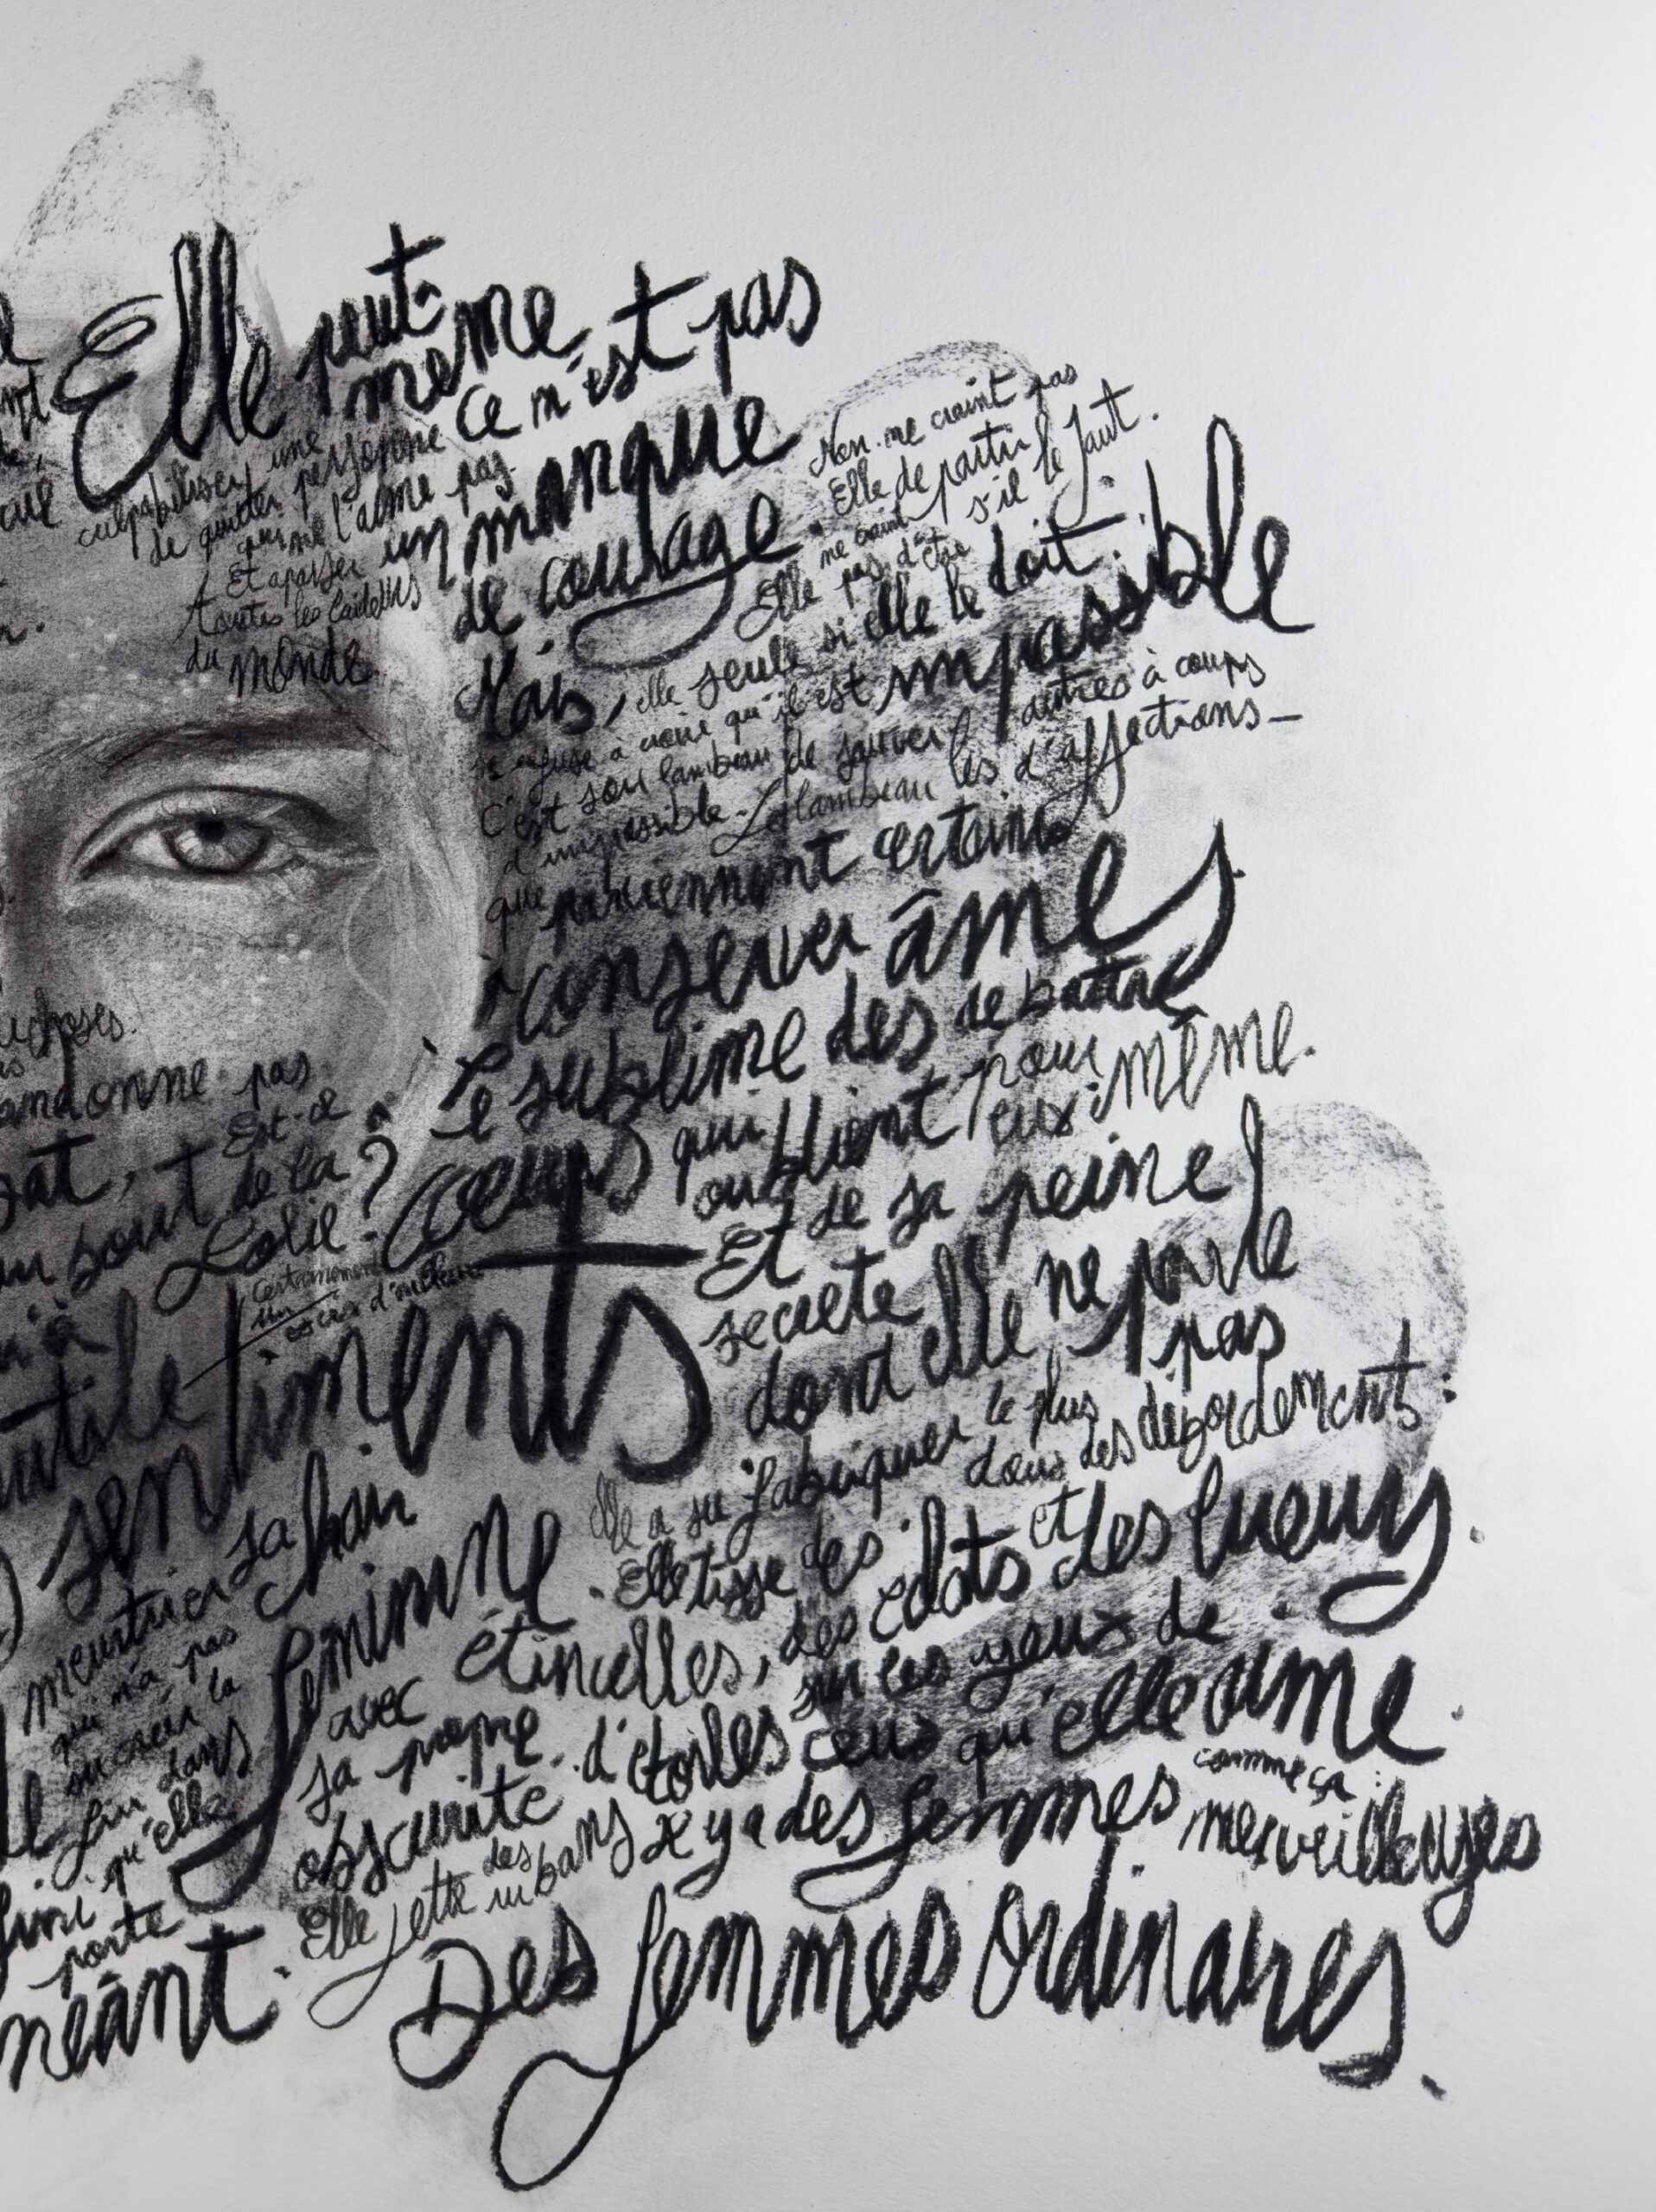 Elle peut
même
culpabiliser une
de quitter personne
qui ne l'aime pas.
Et apaiser
toutes les laideurs
du monde
Ce n'est pas
un manque
de courage.
Non. ne craint pas
Elle de partir
s'il le faut.
ne craint
Elle pas d'être
seule si elle le doit.
Mais, elle
refuse à croire qu'il est impossible
C'est son lambeau de sauver autres à coups
d'impossible. Le lambeau les d'affections-
que parviennent certaines
à conserver âmes
le sublime des de battre
coeurs qui oublient pour
eux même.
uchoses.
andonne pas
Est-ce
au bout de la
Folie?
Certainement
un
sentiments
Et de sa peine
secrète
dont elle ne parle
pas
elle a su fabriquer le plus
dans des débordements.
meurtrier sa chair
féminine.
qui n'a pas
su créer la
fin dans
qu'elle
porte
néant.
Elle tisse des
avec étincelles, des éclats et des lueurs
sa propre
obscurité. d'étoiles sur les yeux de
ceux qu'elle aime.
Elle jette des
rubans
Il y a des femmes comme ça:
merveilleuses
Des femmes ordinaires.